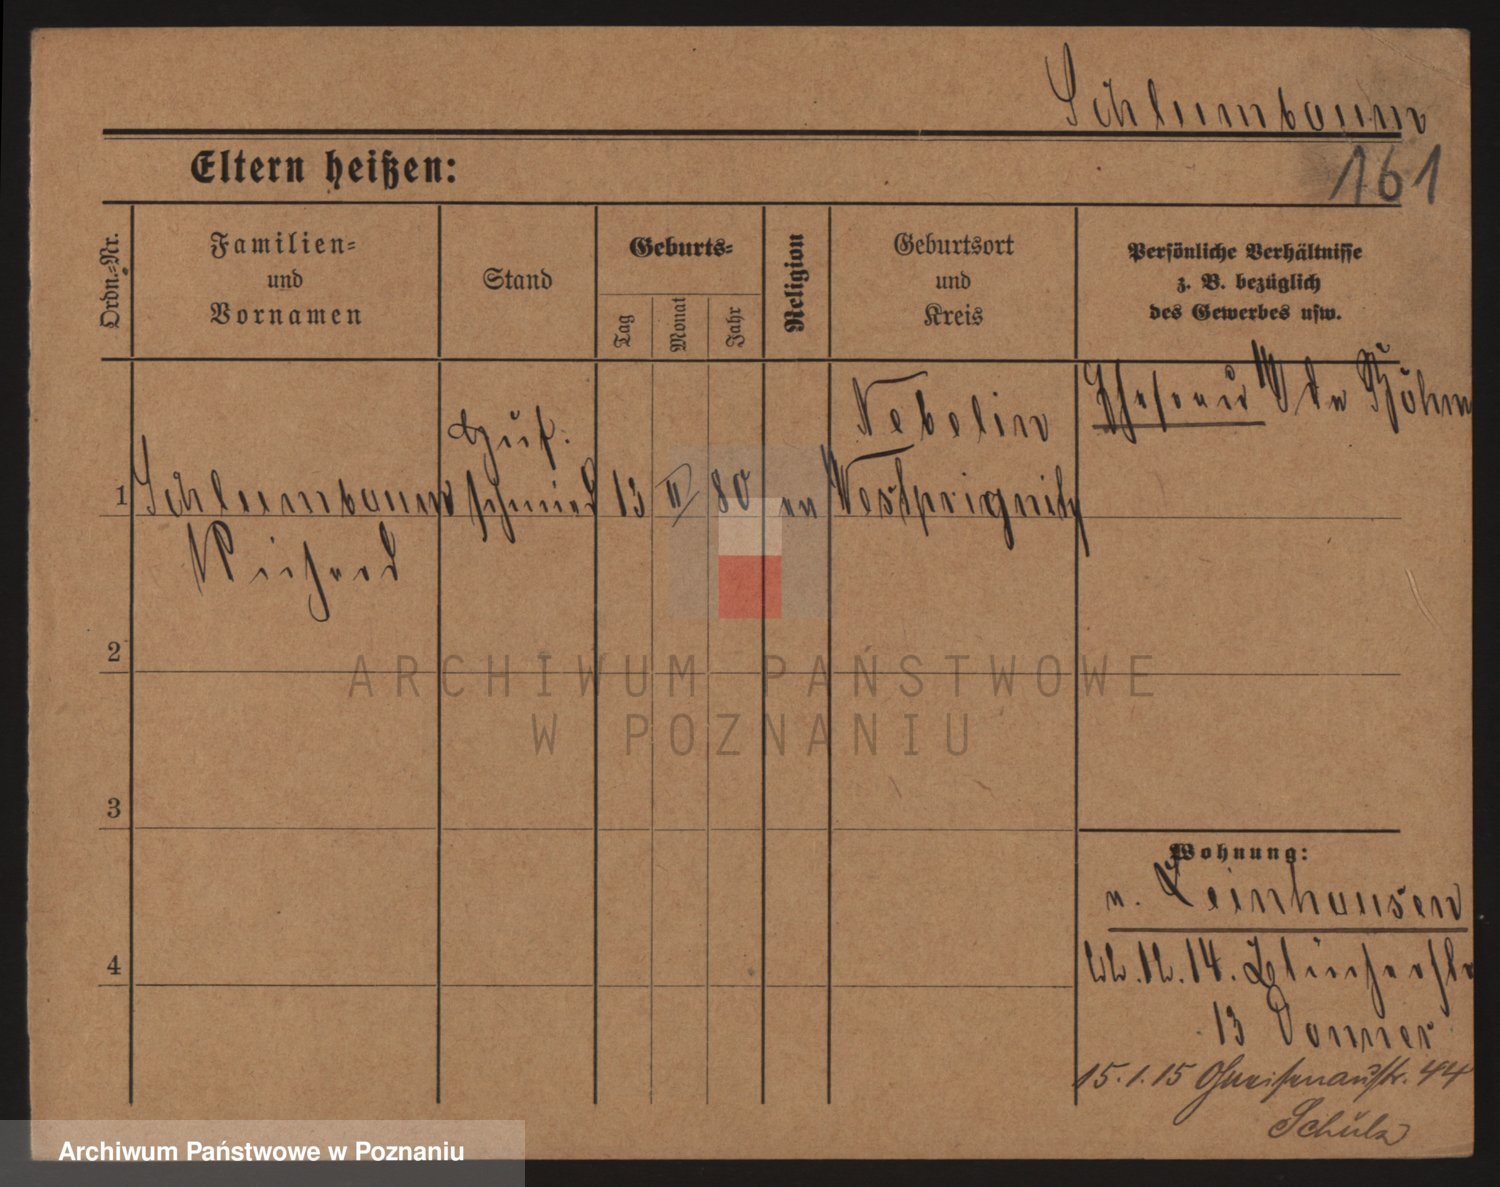 Schleimbaum
161
Eltern heißen:
Ordn.=Nr.
Familien=
und
Vornamen
Stand
Geburts=
Tag
Monat
Jahr
Religion
Geburtsort
und
Kreis
Persönliche Verhältnisse
z. B. bezüglich
des Gewerbes usw.
1
Schleimbaum
Richard
Huf.
schmied
13
II
80
ev
Nebelin
Westprignitz
Ehefrau
Böhm
2
3
4
Wohnung:
n. Leinhausen
22.12.14. Blücherstr
13 Donner
15.1.15 Gneisenaustr. 44
Schulz
ARCHIWUM PAŃSTWOWE
W POZNANIU
Archiwum Państwowe w Poznaniu